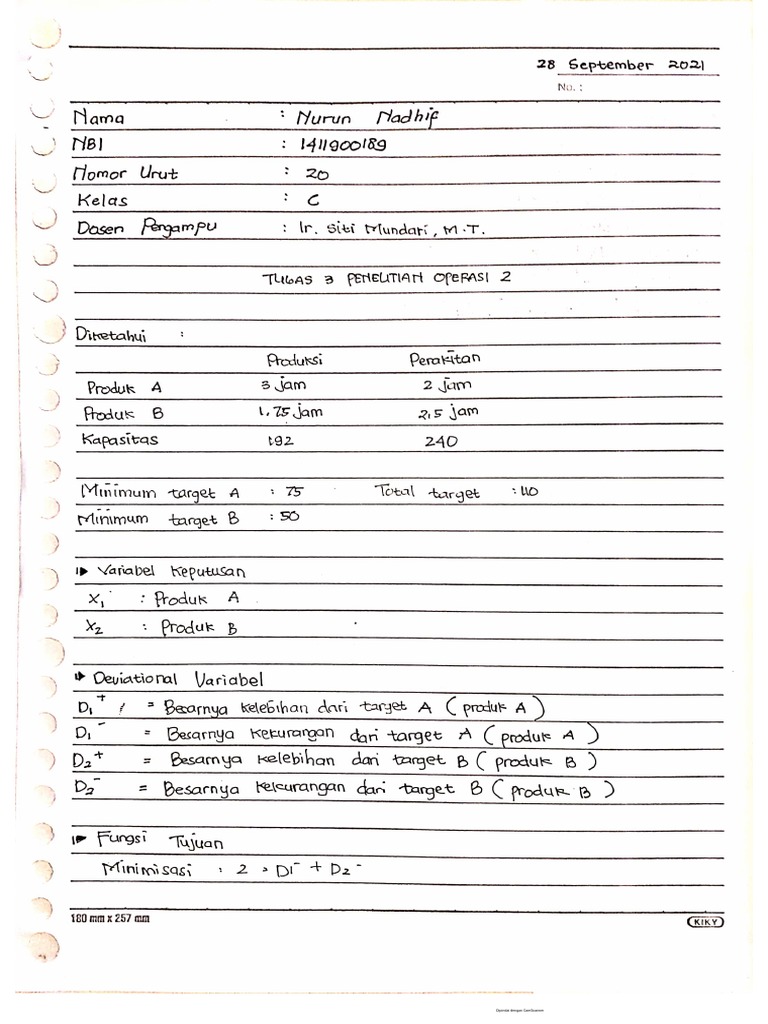 28 September 2021
No. :
Nama : Nurun Nadhif
NBI : 1411900189
Nomor Urut : 20
Kelas : C
Dosen Pengampu : Ir. Siti Mundari, M.T.
TUGAS 3 PENELITIAN OPERASI 2
Diketahui :
Produksi Perakitan
Produk A 3 jam 2 jam
Produk B 1,75 jam 2,5 jam
Kapasitas 192 240
Minimum target A : 75 Total target : 110
Minimum target B : 50
Variabel Keputusan
X₁ : Produk A
X₂ : Produk B
Deviational Variabel
D₁⁺ = Besarnya kelebihan dari target A (produk A)
D₁⁻ = Besarnya kekurangan dari target A (produk A)
D₂⁺ = Besarnya kelebihan dari target B (produk B)
D₂⁻ = Besarnya kekurangan dari target B (produk B)
Fungsi Tujuan
Minimisasi : 2 = D1⁻ + D2⁻
180 mm x 257 mm
KIKY
Dipindai dengan CamScanner